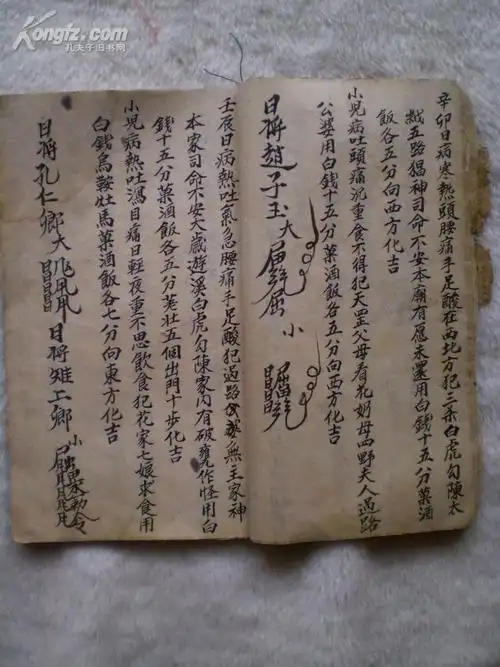 Kongfz.com
孔夫子旧书网
辛卯日病寒熱頭腰痛手足酸在西北方犯三禾白虎勾陳太
越五路猖神司命不安本廟有愿未還用白錢十五分菓酒
飯各五分向西方化吉
小兒病吐頭痛沉重食不得犯天罡父母看花奶母西野夫人過路
公婆用白錢十五分菓酒飯各五分向西方化吉
日將趙子玉大 小
壬辰日病熱吐氣急腰痛手足酸犯過路公婆無主家神
本家司命不安大歲遊溪白虎勾陳家內有破甕作怪用白
錢十五分菓酒飯各五分茺壮五個出門十步化吉
小児病熱吐瀉目痛日輕夜重不思飲食犯花家七娘求食用
白錢烏鞍灶馬菓酒飯各七分向東方化吉
日將孔仁鄉大 日將雉上鄉小